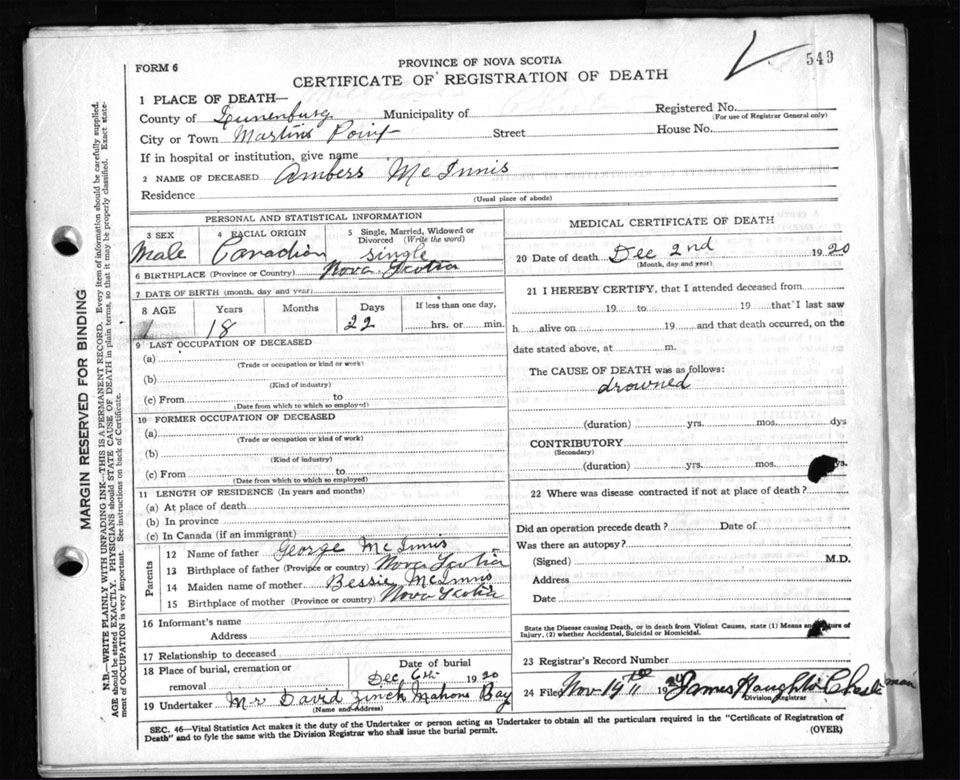 FORM 6
PROVINCE OF NOVA SCOTIA
549
CERTIFICATE OF REGISTRATION OF DEATH
1 PLACE OF DEATH—
County of Lunenburg Municipality of Registered No.
(For use of Registrar General only)
City or Town Martins Point Street House No.
If in hospital or institution, give name
2 NAME OF DECEASED Ambers McInnis
Residence
(Usual place of abode)
PERSONAL AND STATISTICAL INFORMATION
3 SEX 4 RACIAL ORIGIN 5 Single, Married, Widowed or
Divorced (Write the word)
Male Canadian single
6 BIRTHPLACE (Province or Country) Nova Scotia
7 DATE OF BIRTH (month, day and year)
8 AGE Years Months Days If less than one day,
18 22 hrs. or min.
9 LAST OCCUPATION OF DECEASED
(a)
(Trade or occupation or kind or work)
(b)
(Kind of industry)
(c) From to
(Date from which to which so employed)
10 FORMER OCCUPATION OF DECEASED
(a)
(Trade or occupation or kind of work)
(b)
(Kind of industry)
(c) From to
(Date from which to which so employed)
11 LENGTH OF RESIDENCE (In years and months)
(a) At place of death
(b) In province
(c) In Canada (if an immigrant)
Parents
12 Name of father George McInnis
13 Birthplace of father (Province or country) Nova Scotia
14 Maiden name of mother Bessie McInnis
15 Birthplace of mother (Province or country) Nova Scotia
16 Informant's name
Address
17 Relationship to deceased
18 Place of burial, cremation or Date of burial
removal Dec 6th 1920
19 Undertaker Mr David Zinck Mahone Bay
(Name and Address)
MEDICAL CERTIFICATE OF DEATH
20 Date of death Dec 2nd 1920
(Month, day and year)
21 I HEREBY CERTIFY, that I attended deceased from
19 to 19 that I last saw
h alive on 19 and that death occurred, on the
date stated above, at m.
The CAUSE OF DEATH was as follows:
drowned
(duration) yrs. mos. dys
CONTRIBUTORY
(Secondary)
(duration) yrs. mos.
22 Where was disease contracted if not at place of death?
Did an operation precede death? Date of
Was there an autopsy?
(Signed) M.D.
Address
Date
State the Disease causing Death, or in death from Violent Causes, state (1) Means and Nature of
Injury, (2) whether Accidental, Suicidal or Homicidal.
23 Registrar's Record Number
24 Filed Nov 19 19 James
Division Registrar
SEC. 46—Vital Statistics Act makes it the duty of the Undertaker or person acting as Undertaker to obtain all the particulars required in the "Certificate of Registration of
Death" and to fyle the same with the Division Registrar who shall issue the burial permit. (OVER)
MARGIN RESERVED FOR BINDING
N.B.—WRITE PLAINLY WITH UNFADING INK—THIS IS A PERMANENT RECORD. Every item of information should be carefully supplied.
AGE should be stated EXACTLY. PHYSICIANS should STATE CAUSE OF DEATH in plain terms, so that it may be properly classified. Exact state-
ment of OCCUPATION is very important. See instructions on back of Certificate.